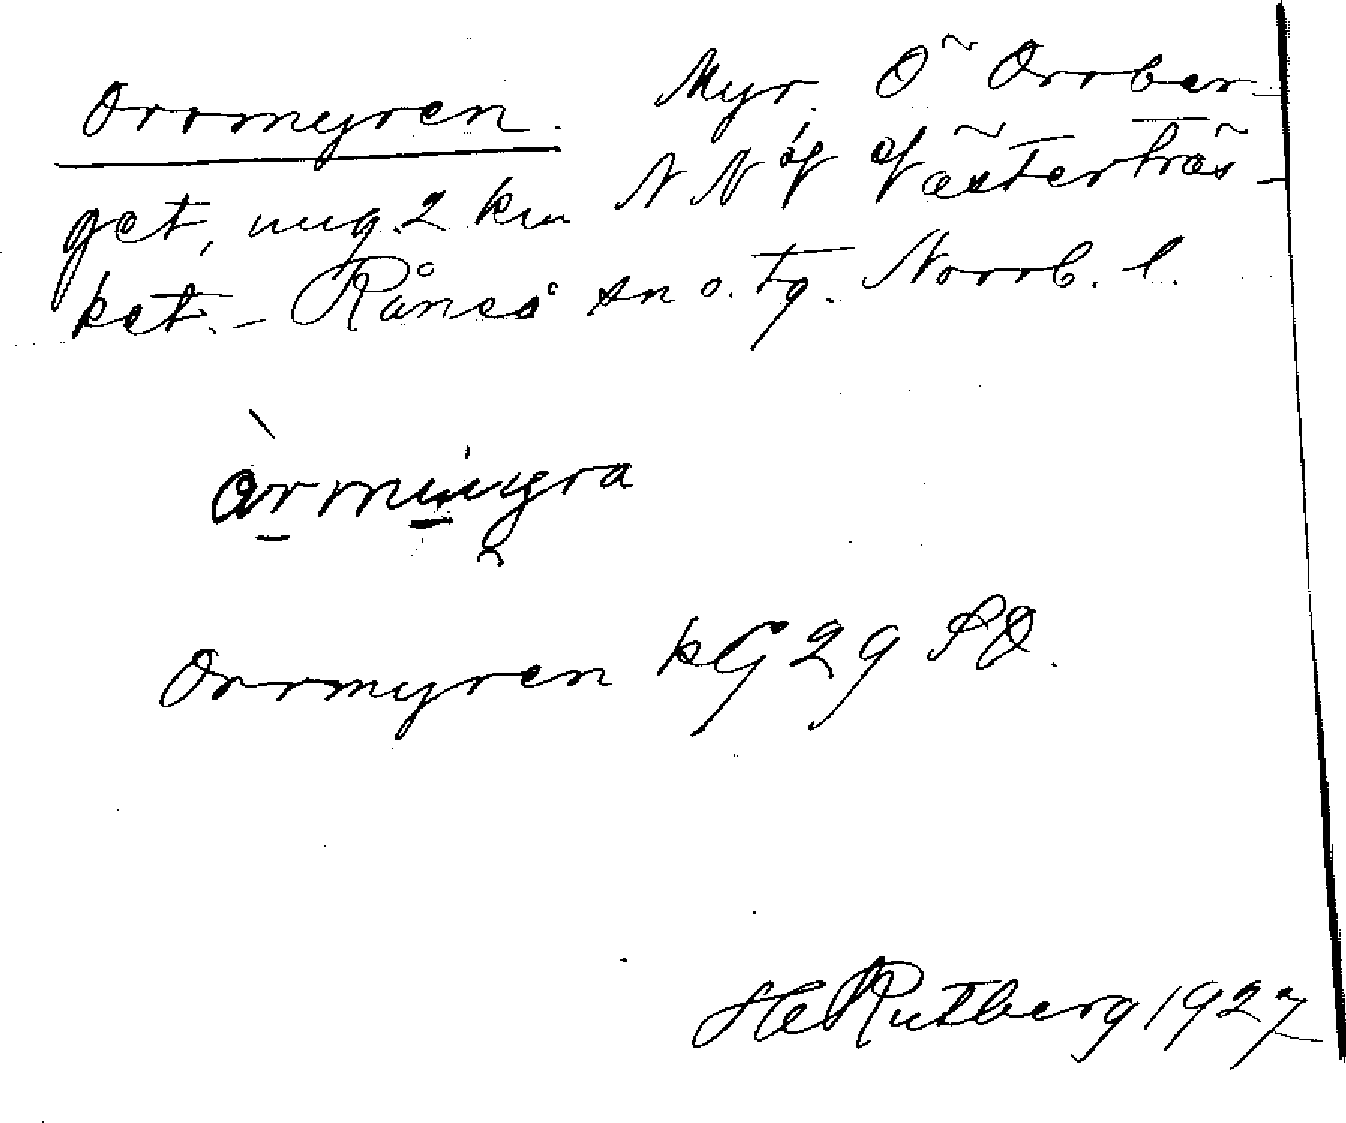 Orrmyren. Myr. Ö Orrber-
get, ung. 2 km NNV Västerträs-
ket. – Råneå sn o. tg. Norrb. l.
Orrmyren kG 29 SO.
HeRutberg 1927